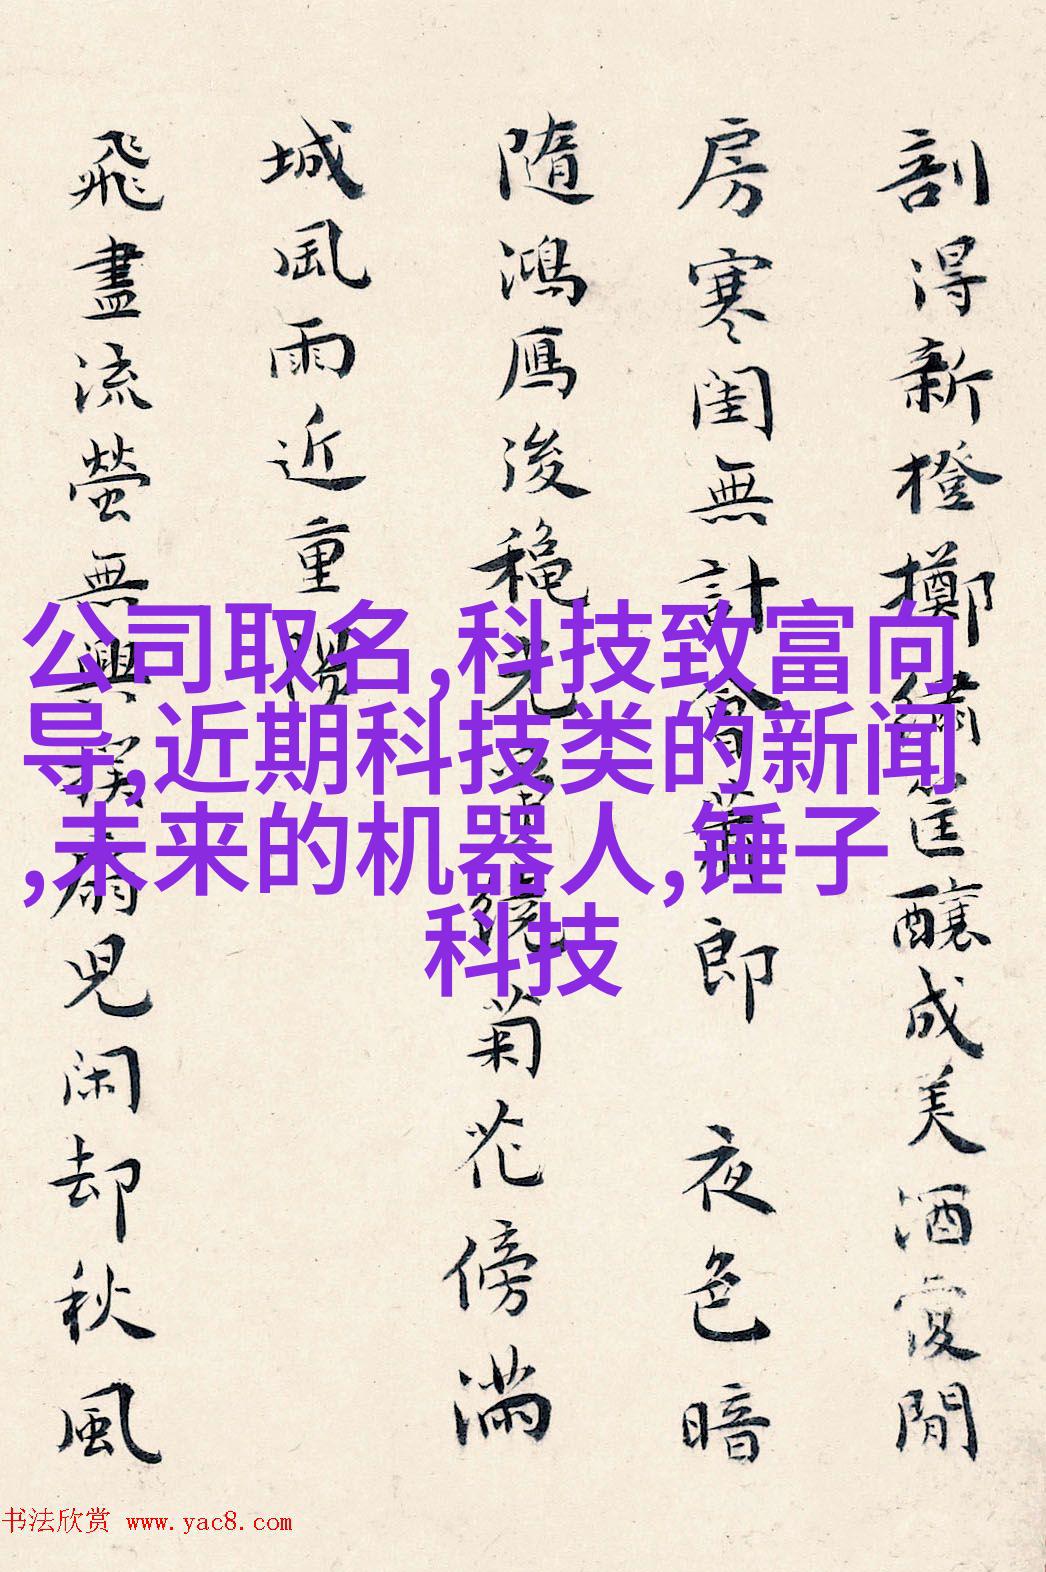 剖得新橙擲繡筐釀成美酒復開
房寒閨無計會蕭郎 夜色暗
隨鴻雁後穐光早繞菊花傍滿
城風雨近重陽
飛盡流螢無興撲扇兒閑却秋風
公司取名,科技致富向
导,近期科技类的新闻
,未来的机器人,锤子
科技
书法欣赏 www.yac8.com